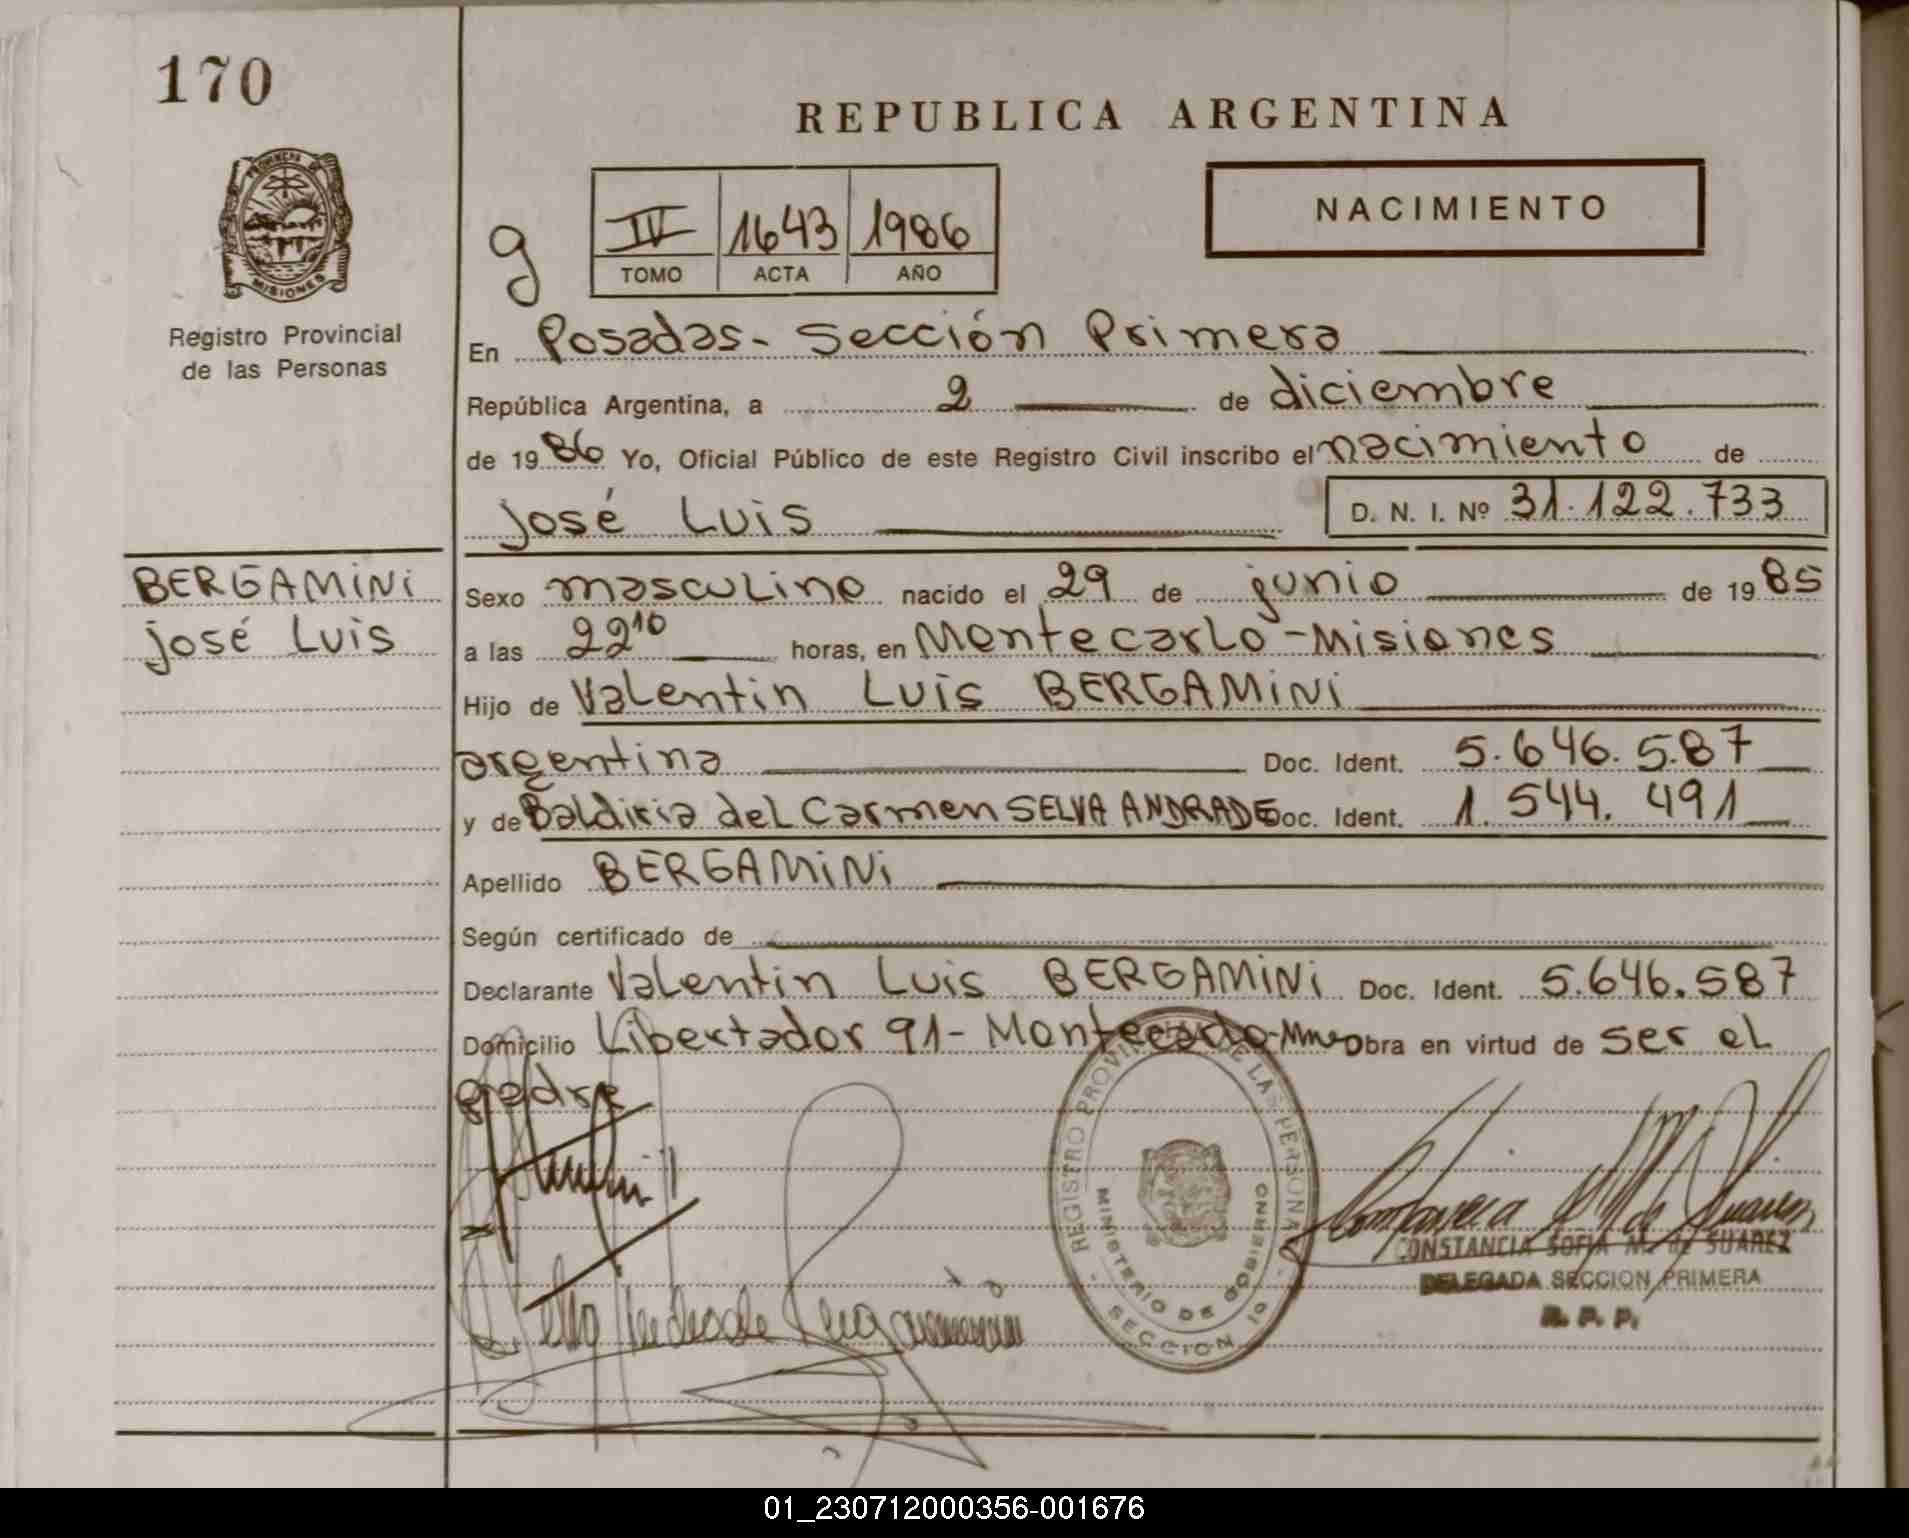 170
REPUBLICA ARGENTINA
PROVINCIA DE
MISIONES
Registro Provincial
de las Personas
g
IV 1643 1986
TOMO ACTA AÑO
NACIMIENTO
En Posadas - Sección Primera
República Argentina, a 2 de diciembre
de 1986 Yo, Oficial Público de este Registro Civil inscribo el nacimiento de
José Luis D. N. I. Nº 31.122.733
BERGAMINI
José Luis
Sexo masculino nacido el 29 de junio de 1985
a las 22 10 horas, en Montecarlo - Misiones
Hijo de Valentin Luis BERGAMINI
argentina Doc. Ident. 5.646.587
y de Baldiria del Carmen SELVA ANDRADE Doc. Ident. 1.544.491
Apellido BERGAMINI
Según certificado de
Declarante Valentin Luis BERGAMINI Doc. Ident. 5.646.587
Domicilio Libertador 91 - Montecarlo - Mnes Obra en virtud de ser el
padre
REGISTRO PROVINCIAL DE LAS PERSONAS
MINISTERIO DE GOBIERNO
SECCION 10
CONSTANCIA SOFIA M. de SUAREZ
DELEGADA SECCION PRIMERA
R. P. P.
01_230712000356-001676